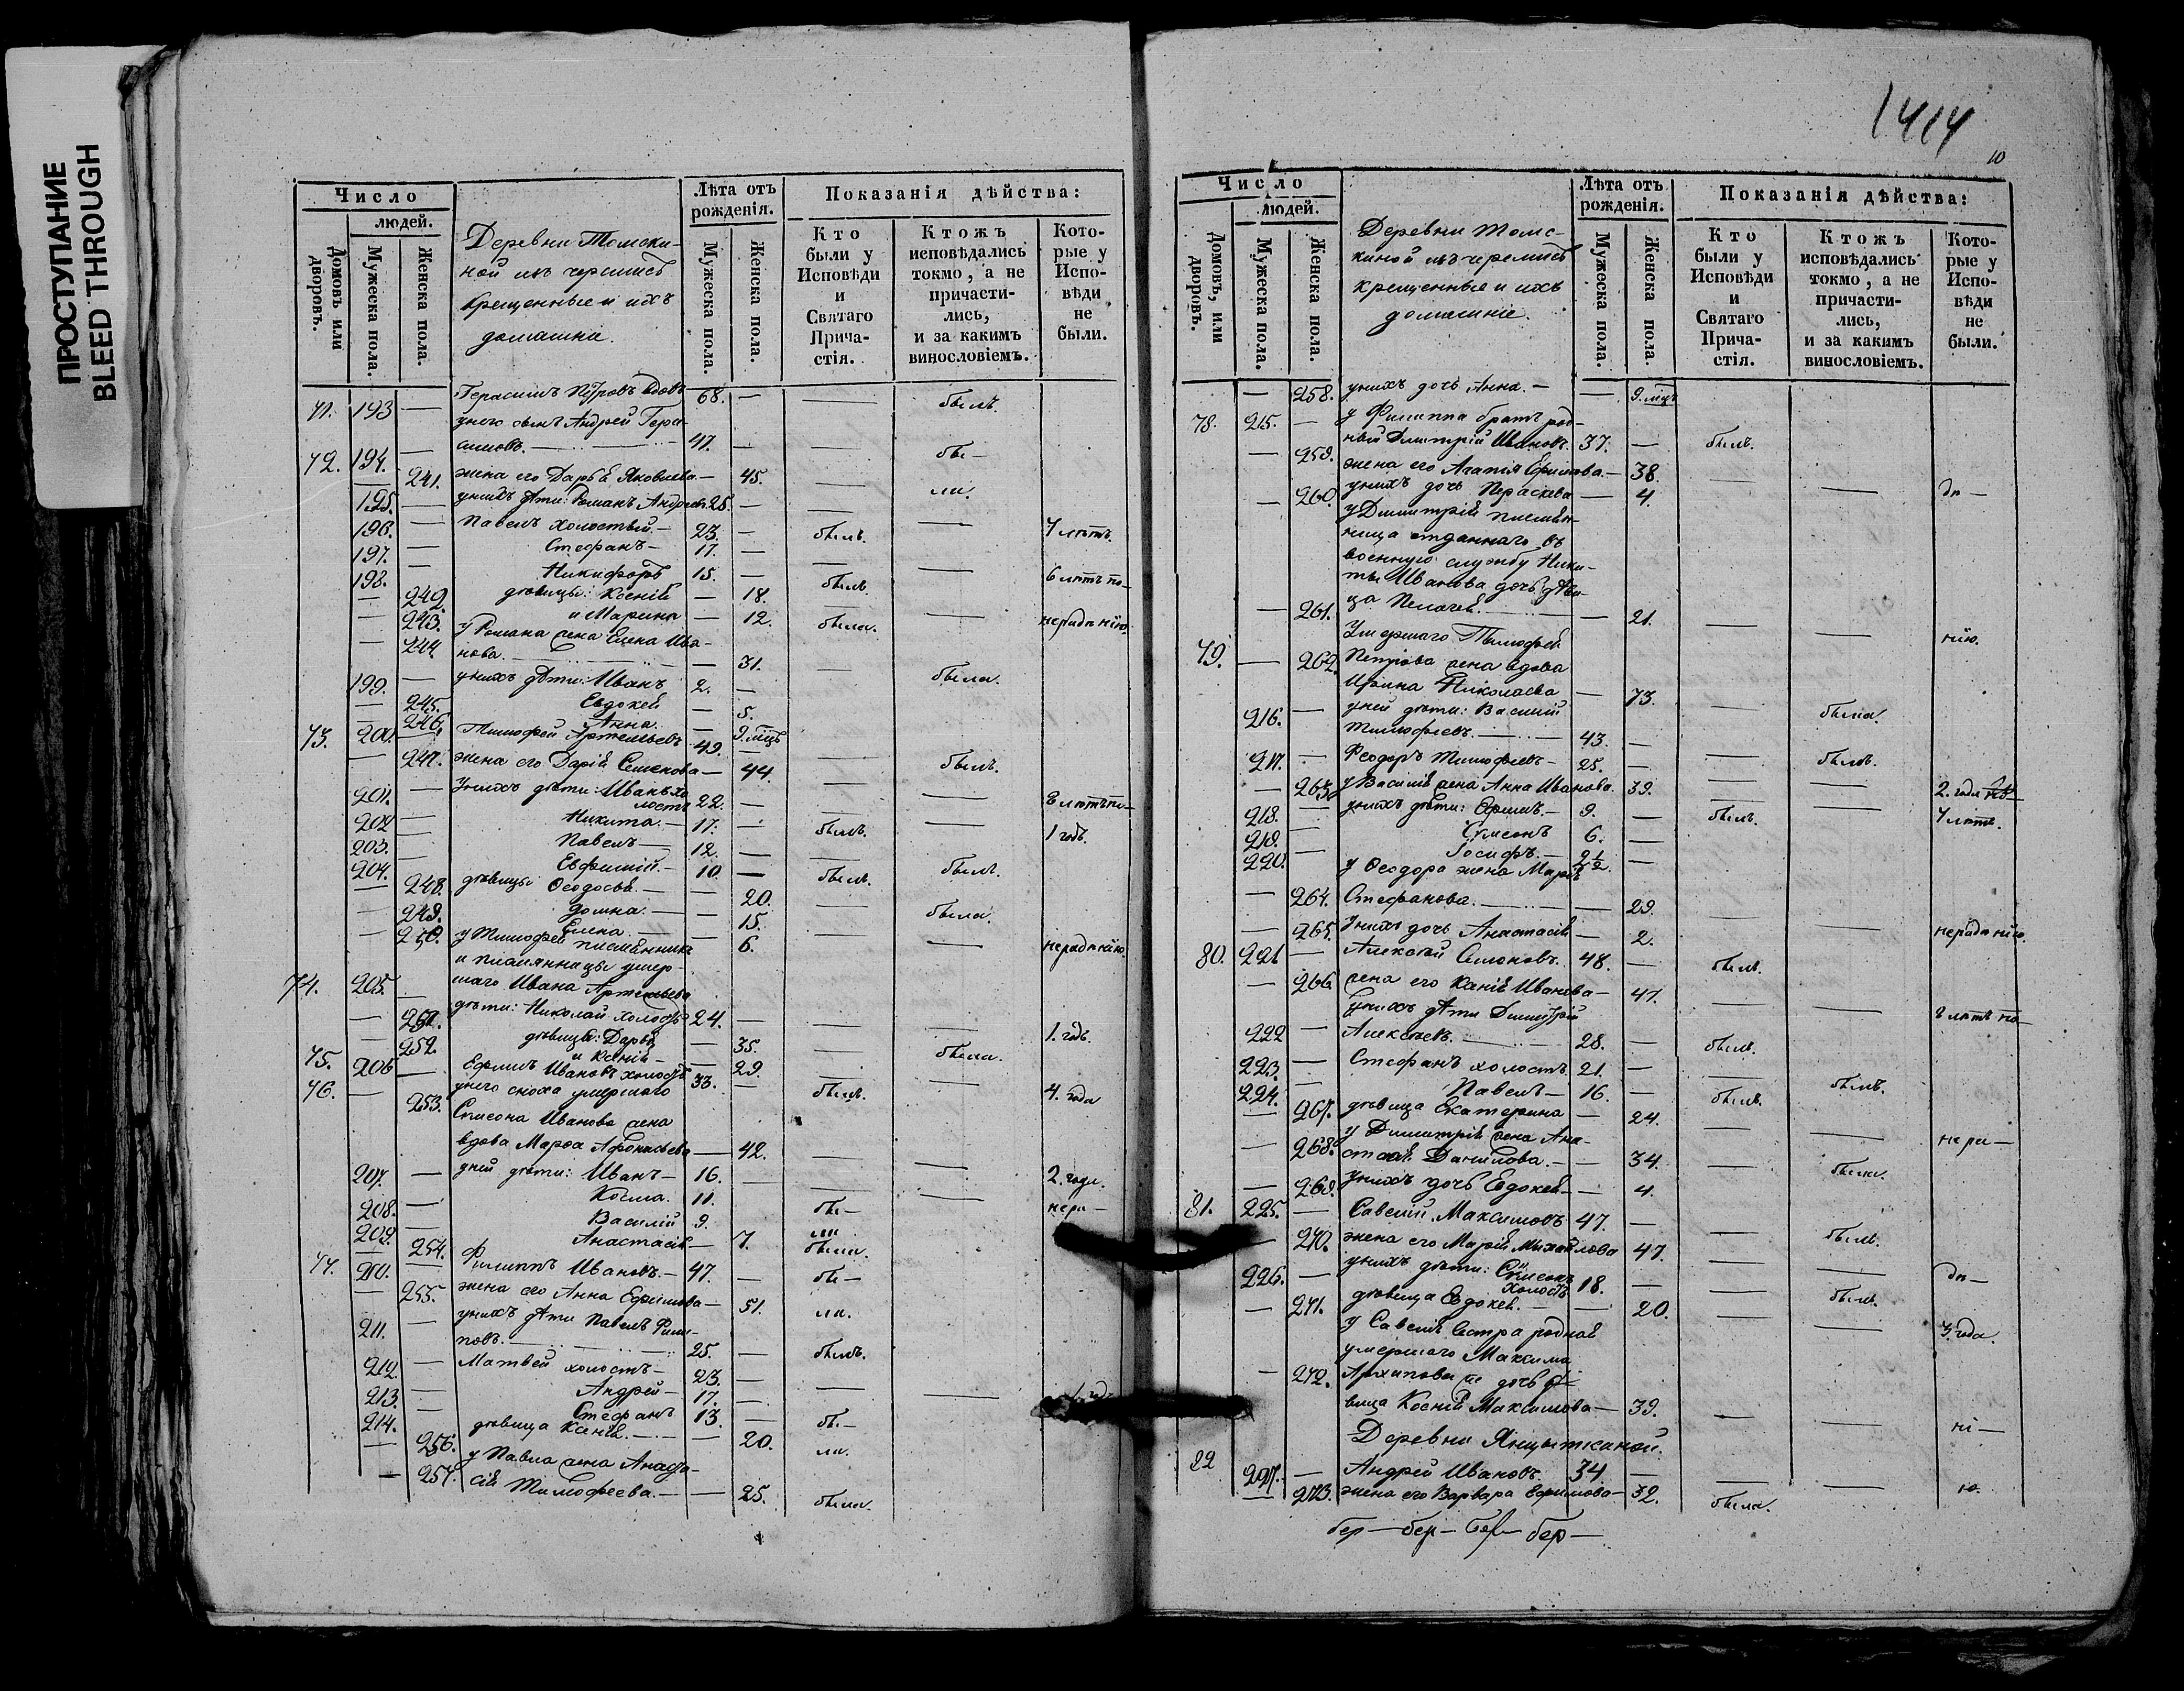 ПРОСТУПАНИЕ
BLEED THROUGH
Число
людей.
Домовъ или дворовъ.
Мужеска пола.
Женска пола.
Деревни Томски-
ной изъ черемисъ
крещенные и ихъ
домашнiе.
Лѣта отъ рожденія.
Мужеска пола.
Женска пола.
Показанія дѣйства:
Кто были у Исповѣди и Святаго Прича-стія.
Ктожъ исповѣдались токмо, а не причасти-лись, и за какимъ винословіемъ.
Кото-рые у Испо-вѣди не были.
71. 193 — Герасимъ Петровъ вдовъ 68. — — былъ.
у него сынъ Андрей Гера-
72. 194. — симовъ. — 47. — бы—
— 241. жена его Дарья Яковлева — 45. — ли.
195. — у нихъ дѣти: Романъ Андреевъ 28. —
196. — Павелъ холостый. — 23. — былъ. — 7 лѣтъ.
197. — Стефанъ — 17. —
198. — Никифоръ 15. — былъ 6 лѣтъ по—
— 242. дѣвицы: Ксенія — 18.
— 243. и Марина — 12. была. — нерадѣнію.
— 244. у Романа жена Елена Ива-
нова. — 31. — была.
199. — у нихъ дѣти: Иванъ 2. —
— 245. Евдокея — 5.
— 246. Анна. — 9. мцъ
73. 200. — Тимофей Артемьевъ 49. —
— 247. жена его Дарія Семенова — 44. — былъ.
201. — У нихъ дѣти: Иванъ хо
лостъ 22. — — 8 лѣтъ по—
202. — Никита. — 17. — былъ. — 1 годъ.
203. — Павелъ — 12. —
204. — Евфимій. — 10. — былъ. былъ.
— 248. дѣвицы Ѳеодосья. — — 20.
— 249. Домна. — — 15. — была.
— 250. Елена. — — 6. — нерадѣнію.
у Тимофея племянника
и племянницы умер-
74. 205. — шаго Ивана Артемьева
— 251. дѣти: Николай холостъ 24. —
— 252. дѣвицы: Дарья — 35. — 1. годъ.
и Ксенія — — 29. — была.
75. 206 — Ефимъ Ивановъ холостъ 33. —
76. — 253. у него сноха умершаго былъ. — 4. года
Симеона Иванова жена
вдова Марѳа Афонасьева — 42.
207. — у ней дѣти: Иванъ — 16. — — 2. года.
208. — Косма. 11. бы— нера—
209. — Василій 9. ли
— 254. Анастасія — 7. была.
77. 210. — Филиппъ Ивановъ. — 47. — бы—
— 255. жена его Анна Ефимова — 51. ли.
211. — у нихъ дѣти Павелъ Фили-
повъ. — 25. — былъ.
212. — Матвей холостъ — 23. —
213. — Андрей — 17. — —
214. — Стефанъ 13. — бы—
— 256. дѣвица Ксенія. — — 20. ли.
— 257. у Павла жена Анаста-
сія Тимофеева. — — 25. была.
1414
10
Число
людей.
Домовъ, или дворовъ.
Мужеска пола.
Женска пола.
Деревни Томс-
киной изъ черемисъ
крещенные и ихъ
домашніе.
Лѣта отъ рожденія.
Мужеска пола.
Женска пола.
Показанія дѣйства:
Кто были у Исповѣди и Святаго Прича-стія.
Ктожъ исповѣдались токмо, а не причасти-лись, и за какимъ винословіемъ.
Кото-рые у Испо-вѣди не были.
— 258. у нихъ дочь Анна. — — 9. мцъ
78. 215. — у Филиппа братъ род-
ный Димитрій Ивановъ. 37. — былъ.
— 259. жена его Агатія Ефимова — 38.
— 260. у нихъ дочь Параскева — 4. — — дѣ—
у Димитрія племян-
ница отданнаго въ
военную службу Ники-
ты Иванова дочь дѣви-
— 261. ца Пелагея. — — 21. — — нію.
Умершаго Тимофея
79. — 262. Петрова жена вдова
Ирина Николаева — 73.
216. — у ней дѣти: Василій — была.
Тимофеевъ. — 43. —
217. — Феодоръ Тимофеевъ — 25. — — былъ.
— 263. у Василія жена Анна Иванова. 39. — — 2. года
218. — у нихъ дѣти: Ефимъ. — 9. — былъ. 7 лѣтъ.
219. — Симеонъ 6. —
220. — Іосифъ. — 2½. —
у Ѳеодора жена Марія
— 264. Стефанова. — — 29.
— 265. У нихъ дочь Анастасія — 2. — — нерадѣнію.
80. 221 — Алексѣй Симоновъ. 48. — былъ.
— 266 жена его Ксенія Иванова — 47.
у нихъ дѣти Димитрій — — 2 лѣтъ по—
222 — Алексѣевъ. — 28. — былъ.
223. — Стефанъ холостъ. 21. —
224. — Павелъ — 16. — былъ. былъ.
— 267. дѣвица Екатерина — 24.
— 268. у Димитрія жена Ана- — — нера—
стасія Данилова. — — 34. — была.
— 269. У нихъ дочь Евдокея — — 4.
81. 225. — Савелій Максимовъ 47. —
— 270. жена его Марія Михайлова 47. — былъ.
226. — у нихъ дѣти: Симеонъ
холостъ 18. — — дѣ—
— 271. дѣвица Евдокея. — — 20. — была.
у Савелія сестра родная
умершаго Максима — 3. года.
— 272. Архипова дочь дѣ-
вица Ксенія Максимова — 39. — — ні—
Деревни Янцыткиной.
82 227. — Андрей Ивановъ 34 —
— 273. жена его Варвара Ефимова — 32. была. — ю.